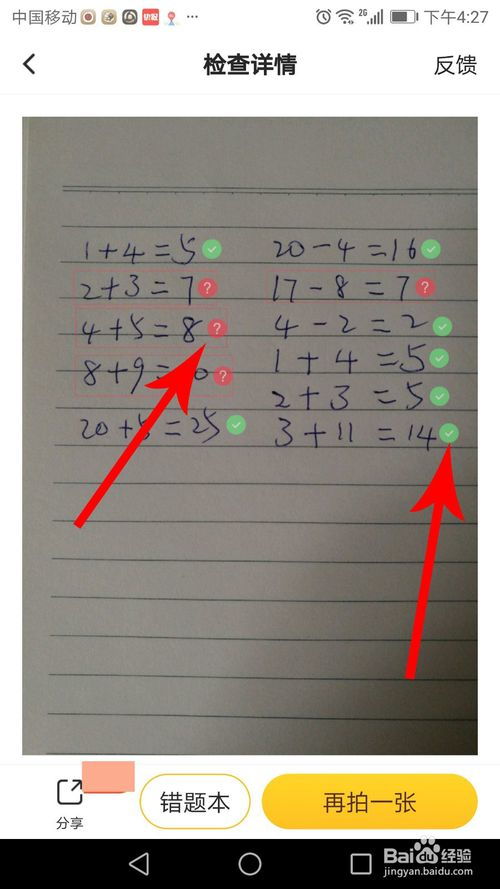 中国移动 2G 下午4:27
检查详情 反馈
1+4=5 20-4=16
2+3=7 ? 17-8=7 ?
4+5=8 ? 4-2=2
8+9= 0 ? 1+4=5
2+3=5
20+5=25 3+11=14
分享 错题本 再拍一张
Baidu经验
jingyan.baidu.com